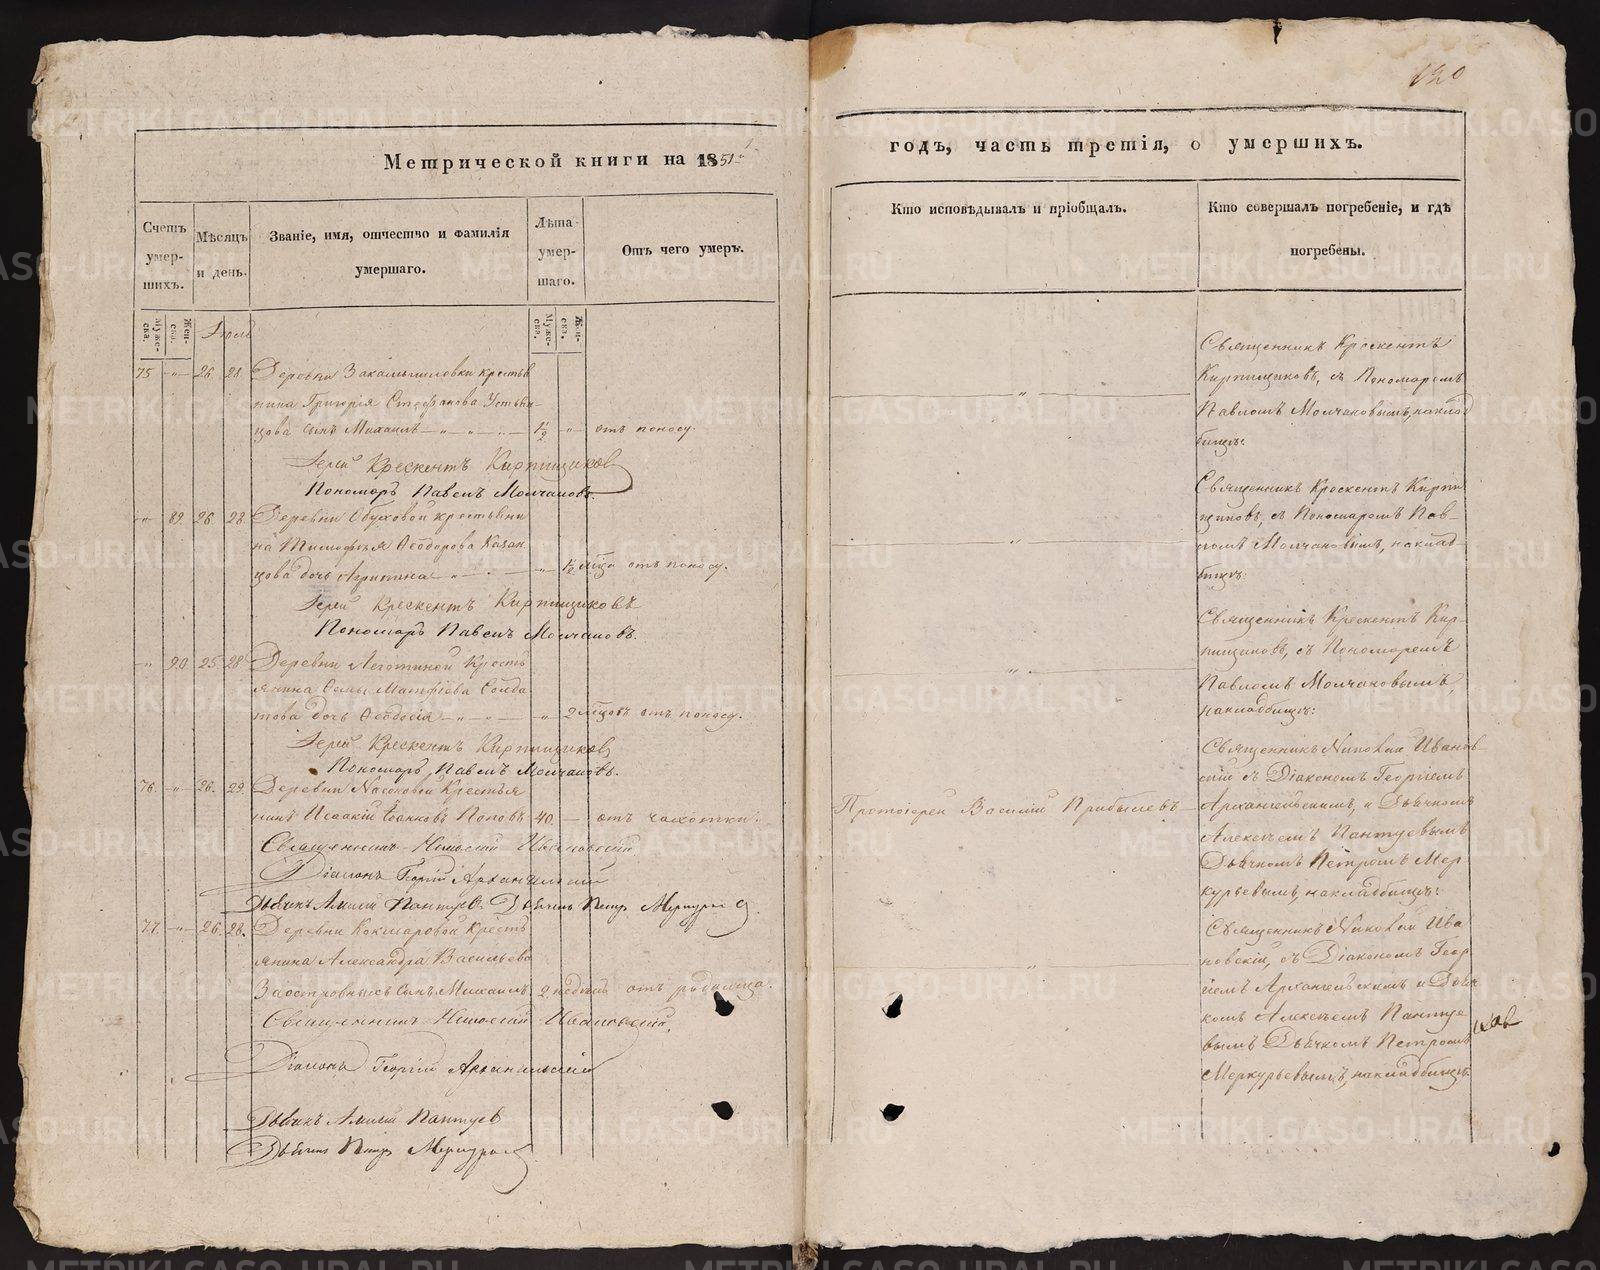 130
Метрической книги на 1851й
годъ, часть третія, о умершихъ.
Счетъ умер-шихъ.
Мѣсяцъ и день.
Званіе, имя, отчество и фамилія
умершаго.
Лѣта умер-шаго.
Отъ чего умеръ.
Кто исповѣдывалъ и пріобщалъ.
Кто совершалъ погребеніе, и гдѣ
погребены.
Муже-ска.
Жен-ска.
Іюль
Муже-ска.
Жен-ска.
75 " 26 28 Деревни Закамышловки крестья
нина Григорія Стефанова Устьян-
цова сынъ Михаилъ 1½ " отъ поносу.
Іерей Крескентъ Кирпищиковъ
Пономарь Павелъ Молчановъ.
"
Священникъ Крескентъ
Кирпищиковъ, съ Пономаремъ
Павломъ Молчановымъ, на клад
бищѣ:
" 89 26 28 Деревни Обуховой крестьяни
на Тимофея Ѳеодорова Казан
цова дочь Агрипина " ½ мца отъ поносу.
Іерей Крескентъ Кирпищиковъ
Пономарь Павелъ Молчановъ.
"
Священникъ Крескентъ Кирпи
щиковъ, съ Пономаремъ Пав-
ломъ Молчановымъ, на клад-
бищѣ:
" 90 25 28 Деревни Леготиной Кресть
янина Ѳомы Матфіева Солда
това дочь Ѳеодосія " 2 мцовъ отъ поносу.
Іерей Крескентъ Кирпищиковъ
Пономарь Павелъ Молчановъ.
"
Священникъ Крескентъ Кир-
пищиковъ, съ Пономаремъ
Павломъ Молчановымъ,
на кладбищѣ:
76. " 26. 29. Деревни Насоновой Крестья
нинъ Исаакій Іоанновъ Поповъ 40. — отъ чахотки.
Священникъ Николай Ивановскій
Діаконъ Георгій Архангельскій
Дьячкъ Алексѣй Пантуевъ. Дьячекъ Петръ Меркурьевъ.
Протоіерей Василій Прибылевъ
Священникъ Николай Иванов-
скій съ Діакономъ Георгіемъ
Архангельскимъ, и Дьячкомъ
Алексѣемъ Пантуевымъ
Дьячкомъ Петромъ Мер
курьевымъ, на кладбищѣ:
77. " 26. 28. Деревни Кокшаровой Кресть
янина Александра Васильева
Заостровныхъ сынъ Михаилъ 2 недѣль отъ родимца.
Священникъ Николай Ивановскій,
Діаконъ Георгій Архангельскій
Дьячкъ Алексѣй Пантуевъ
Дьячекъ Петръ Меркурьевъ
"
Священникъ Николай Ива
новскій, съ Діакономъ Геор
гіемъ Архангельскимъ и Дьяч
комъ Алексѣемъ Пантуе
вымъ Дьячкомъ Петромъ
Меркурьевымъ, на кладбищѣ
METRIKI.GASO-URAL.RU